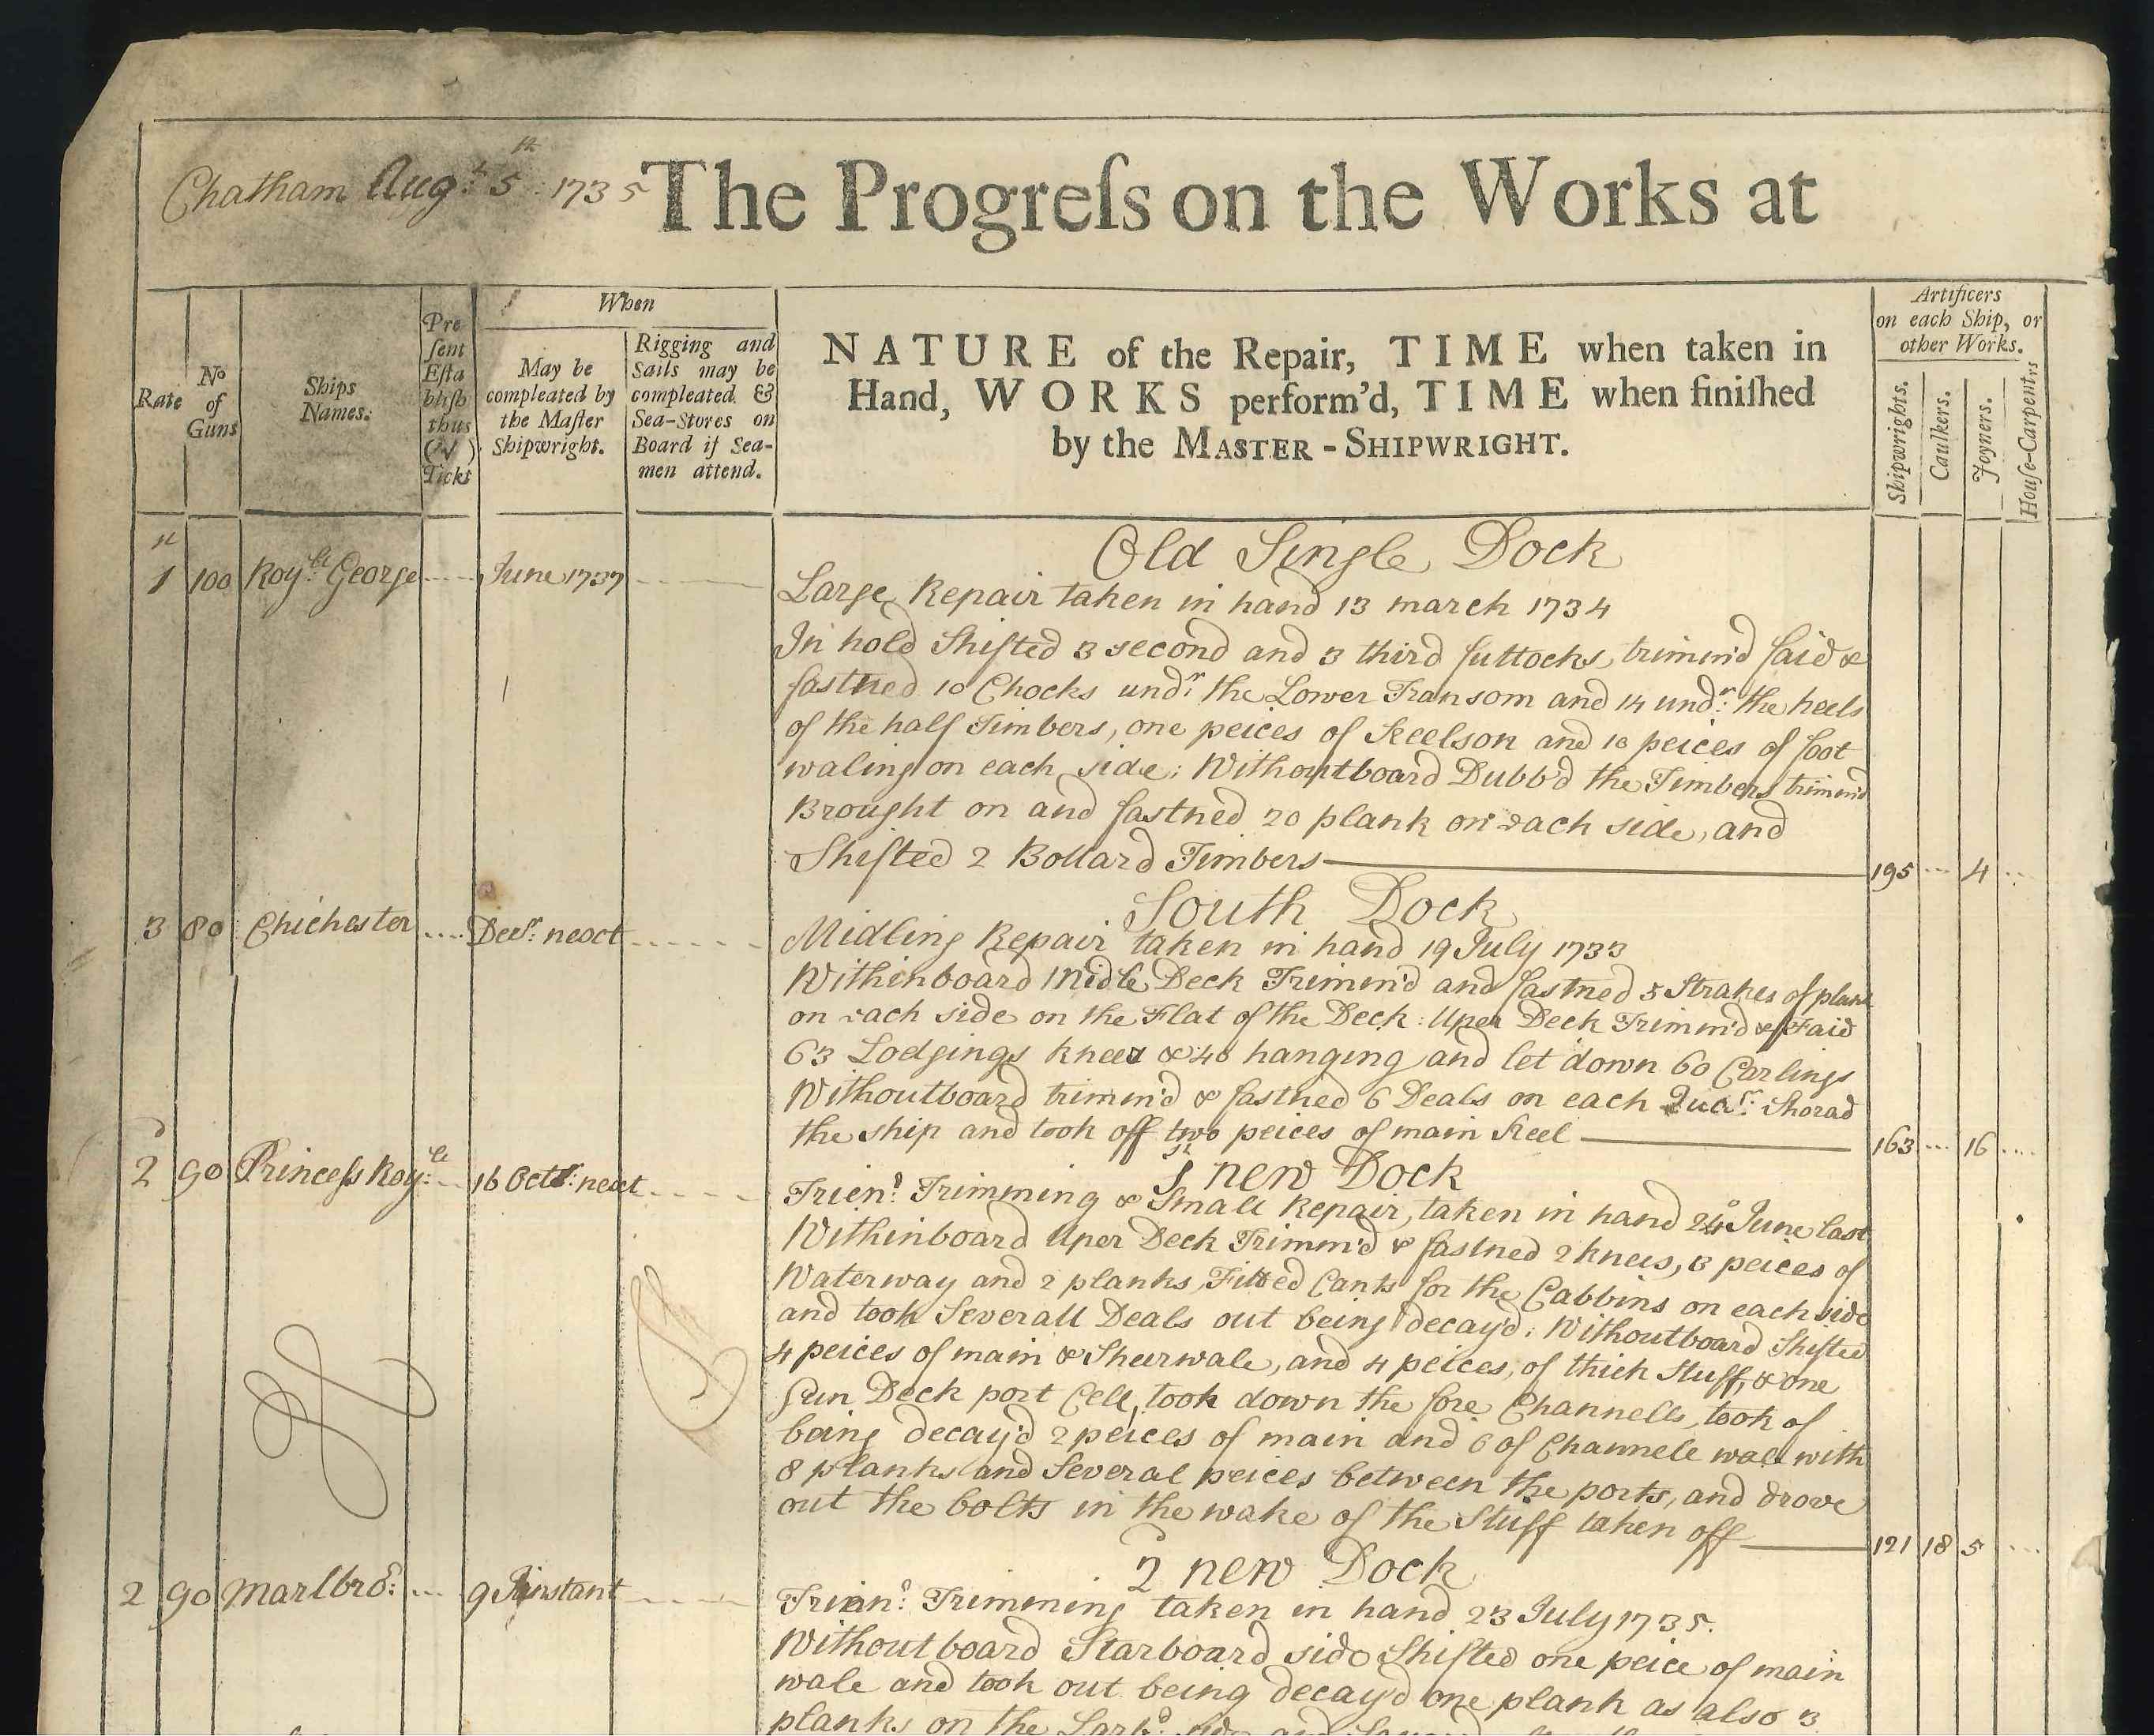 Chatham Augt. 5th. 1735 The Progreſs on the Works at
Rate
No of Guns
Ships Names.
Preſent Eſtabliſh thus (√) Tickt
When
May be compleated by the Maſter Shipwright.
Rigging and Sails may be compleated & Sea-Stores on Board if Seamen attend.
NATURE of the Repair, TIME when taken in
Hand, WORKS perform'd, TIME when finiſhed
by the MASTER-SHIPWRIGHT.
Artificers
on each Ship, or
other Works.
Shipwrights.
Caulkers.
Joyners.
Houſe-Carpentrs
Old Single Dock
1st 100 Royll. George June 1737
Large Repair taken in hand 13 march 1734
In hold Shifted 3 second and 3 third futtocks, trimm'd faid &
fastned 10 Chocks undr. the Lower Transom and 14 undr. the heels
of the half Timbers, one peices of Keelson and 10 peices of foot
waling on each side: Withoutboard Dubb'd the Timbers trimm'd
Brought on and fastned 20 plank on each side, and
Shifted 2 Bollard Timbers 195 4
South Dock
3 80 Chichester Decr. next
Midling Repair taken in hand 19 July 1733
Withinboard Midle Deck Trimm'd and fastned 5 Strakes of plank
on each side on the Flat of the Deck: Uper Deck Trimm'd & Faid
63 Lodgings knees & 40 hanging and let down 60 Carlings
Withoutboard trimm'd & fastned 6 Deals on each Quar. Shorad
the ship and took off two peices of main Keel 163 16
1st new Dock
2d 90 Princeſs Royll. 16 Octr. next
Trienl. Trimming & Small Repair, taken in hand 24o June last
Withinboard Uper Deck Trimm'd & fastned 2 knees, 3 peices of
Waterway and 2 planks, Fitted Cants for the Cabbins on each side
and took Severall Deals out being decay'd: Withoutboard Shifted
4 peices of main & Sheerwale, and 4 peices, of thick Stuff, & one
Gun Deck port Cell, took down the fore Channells, took of
being decay'd 2 peices of main and 6 of Channele wale with
8 planks and Several peices between the ports, and drove
out the bolts in the wake of the Stuff taken off 121 18 5
2d new Dock
2 90 Marlbro: 9 Instant
Trian: Trimming taken in hand 23 July 1735.
Without board Starboard side Shifted one peice of main
wale and took out being decay'd one plank as also 3
planks on the Larbd. side and